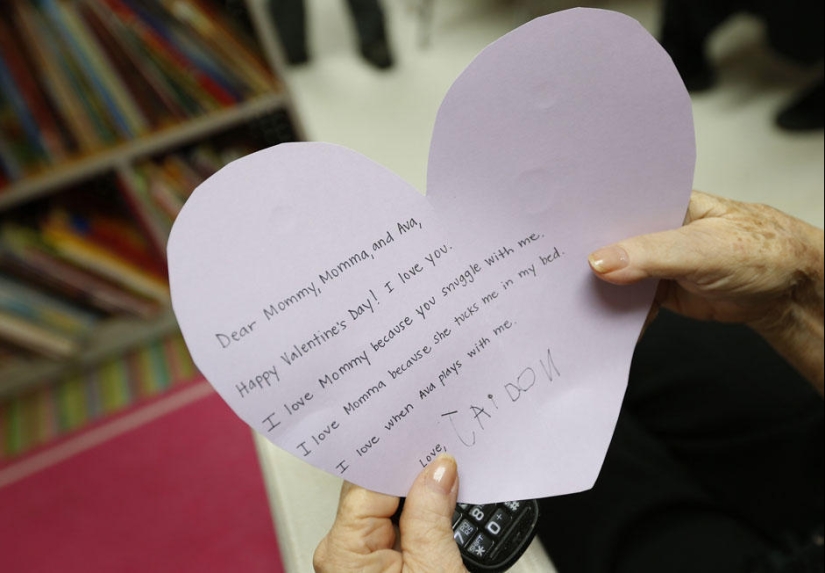 Dear Mommy, Momma, and Ava,
Happy Valentine's Day! I love you.
I love Mommy because you snuggle with me.
I love Momma because she tucks me in my bed.
I love when Ava plays with me.
Love, JAiDON
8
0+
#
*